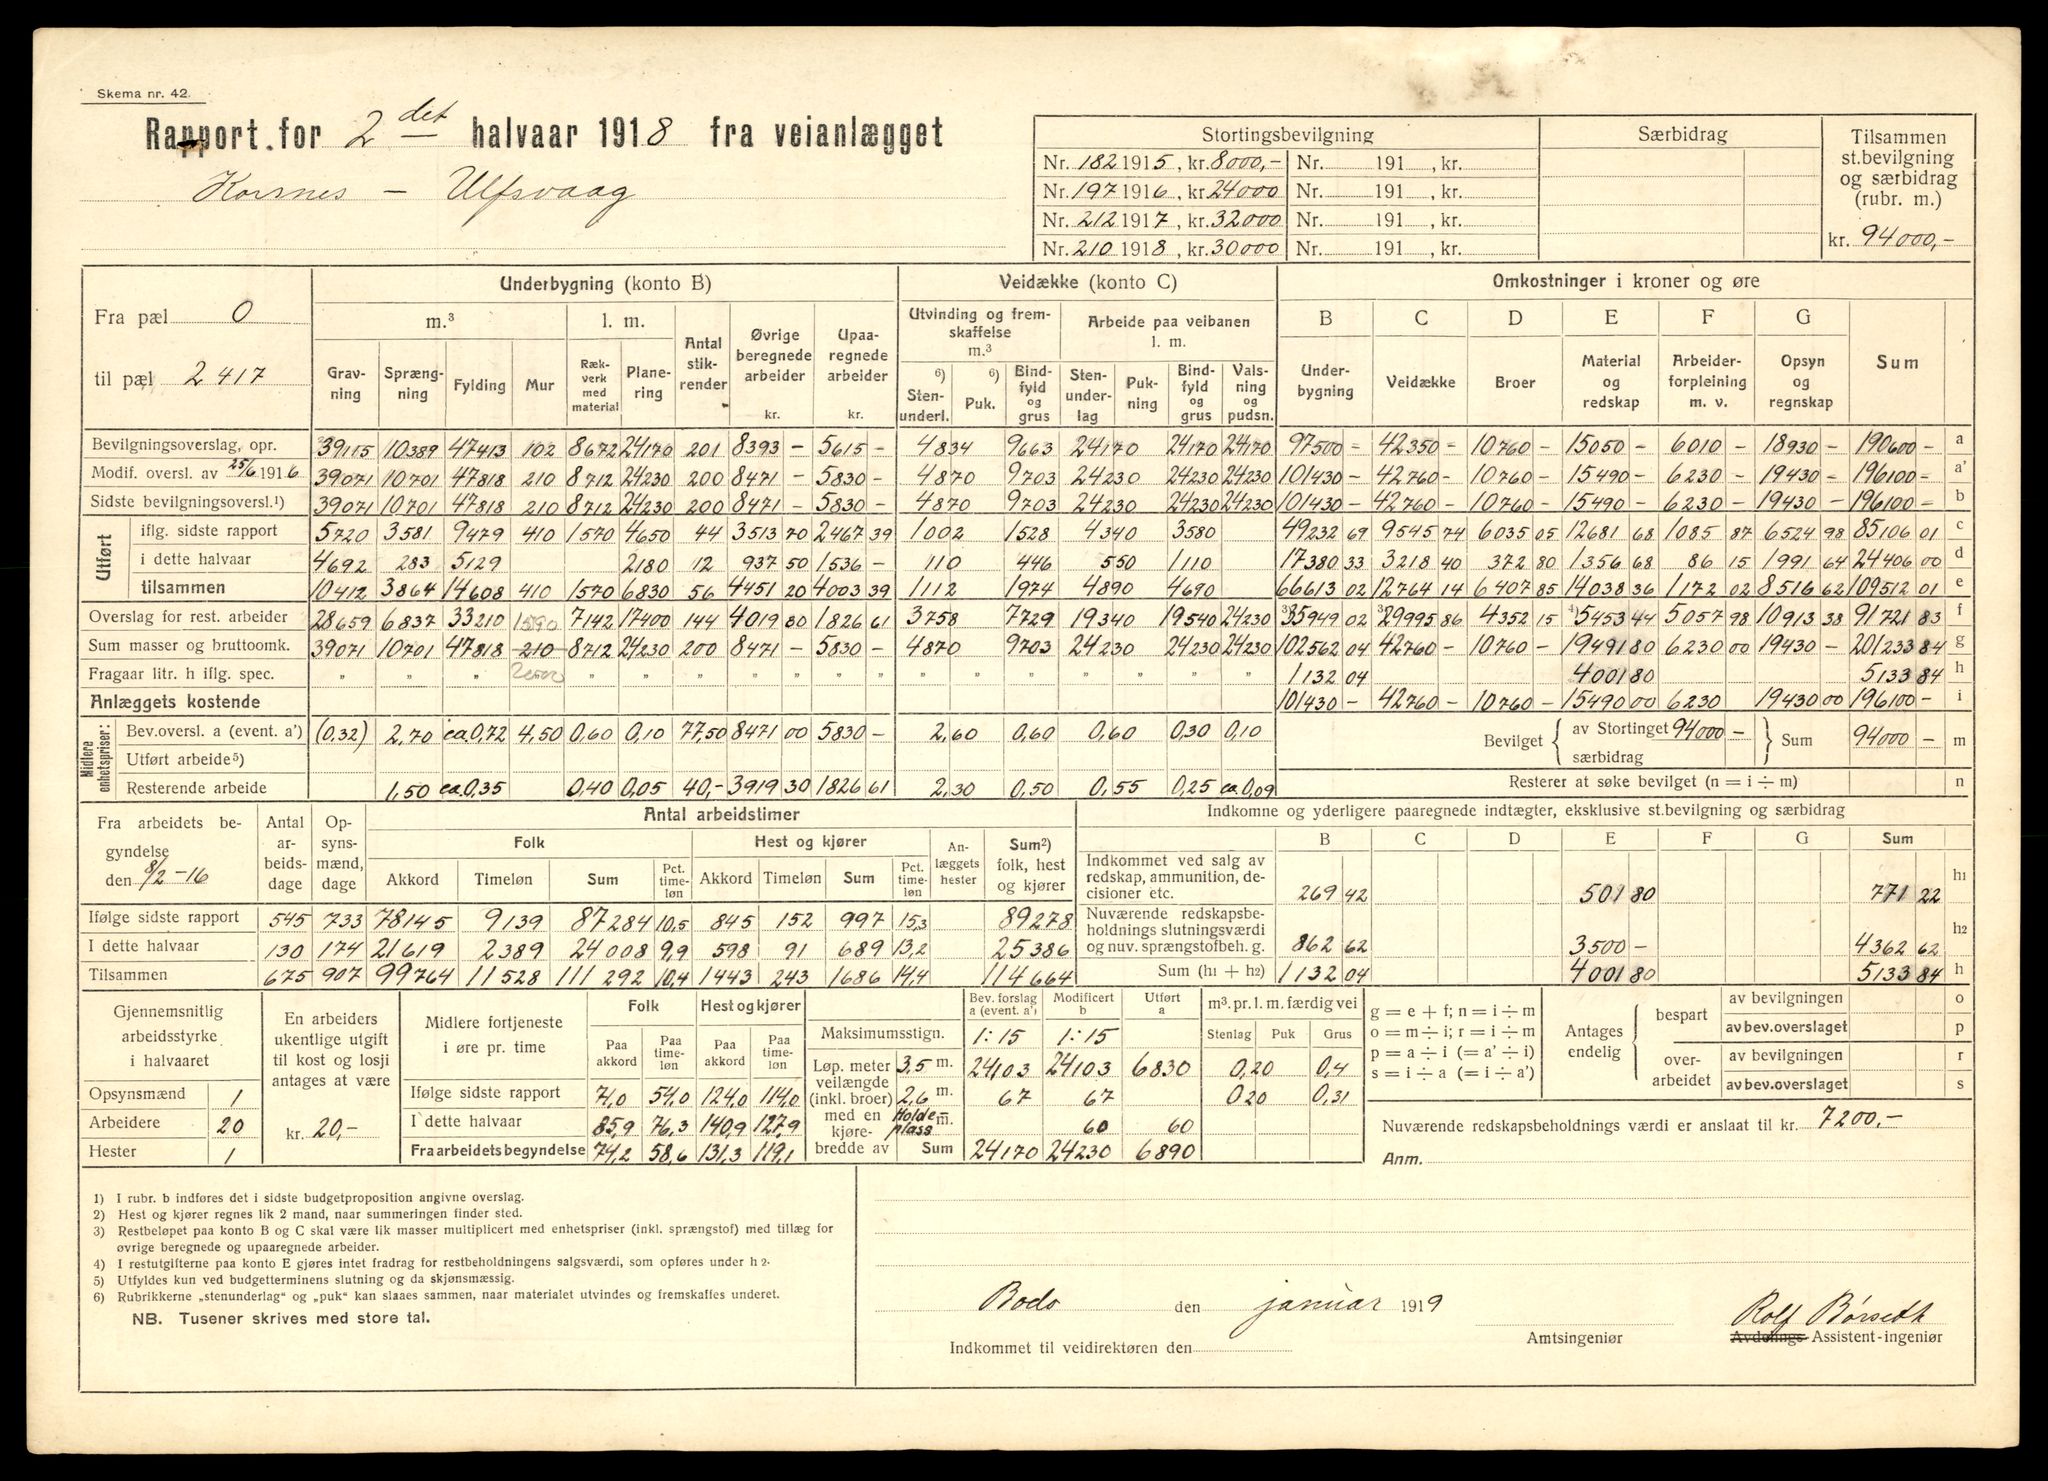 Skema nr. 42.
Rapport for 2 det halvaar 1918 fra veianlægget
Korsnes - Ulfsvaag
Stortingsbevilgning Særbidrag Tilsammen st.bevilgning og særbidrag (rubr. m.)
Nr. 182 1915, kr. 8000,- Nr. 191 , kr.
Nr. 197 1916, kr. 24000 Nr. 191 , kr.
Nr. 212 1917, kr. 32000 Nr. 191 , kr.
Nr. 210 1918, kr. 30000 Nr. 191 , kr.
kr. 94000,-
Fra pæl 0
til pæl 2417
Underbygning (konto B) Veidække (konto C) Omkostninger i kroner og øre
m.³ l. m. Antal stikrender Øvrige beregnede arbeider kr. Upaaregnede arbeider kr. Utvinding og fremskaffelse m.³ Arbeide paa veibanen l. m. B C D E F G Sum
Gravning Sprængning Fylding Mur Rækverk med material Planering 6) Stenunderl. 6) Puk. Bindfyld og grus Stenunderlag Pukning Bindfyld og grus Valsning og pudsn. Underbygning Veidække Broer Material og redskap Arbeiderforpleining m. v. Opsyn og regnskap
Bevilgningsoverslag, opr. 39115 10389 47413 102 8672 24170 201 8393 - 5615 - 4834 9663 24170 24170 24170 97500 - 42350 - 10760 - 15050 - 6010 - 18930 - 190600 - a
Modif. oversl. av 25/6 1916 39071 10701 47818 210 8712 24230 200 8471 - 5830 - 4870 9703 24230 24230 24230 101430 - 42760 - 10760 - 15490 - 6230 - 19430 - 196100 - a'
Sidste bevilgningsoversl.¹) 39071 10701 47818 210 8712 24230 200 8471 - 5830 - 4870 9703 24230 24230 24230 101430 - 42760 - 10760 - 15490 - 6230 - 19430 - 196100 - b
Utført
iflg. sidste rapport 5720 3581 9479 410 1570 4650 44 3513 70 2467 39 1002 1528 4340 3580 49232 69 9545 74 6035 05 12681 68 1085 87 6524 98 85106 01 c
i dette halvaar 4692 283 5129 2180 12 937 50 1536 - 110 446 550 1110 17380 33 3218 40 372 80 1356 68 86 15 1991 64 24406 00 d
tilsammen 10412 3864 14608 410 1570 6830 56 4451 20 4003 39 1112 1974 4890 4690 66613 02 12764 14 6407 85 14038 36 1172 02 8516 62 109512 01 e
Overslag for rest. arbeider 28659 6837 33210 7142 17400 144 4019 80 1826 61 3758 7729 19340 19540 24230 ³)35949 02 ³)29995 86 4352 15 ⁴)5453 44 5057 98 10913 38 91721 83 f
Sum masser og bruttoomk. 39071 10701 47818 210 8712 24230 200 8471 - 5830 - 4870 9703 24230 24230 24230 102562 04 42760 - 10760 - 19491 80 6230 00 19430 - 201233 84 g
Fragaar litr. h iflg. spec. " " " " " " " " " " " " " 1132 04 4001 80 5133 84 h
Anlæggets kostende 101430 - 42760 - 10760 - 15490 00 6230 19430 00 196100 - i
Midlere enhetspriser:
Bev.oversl. a (event. a') (0.32) 2,70 ca.0,72 4,50 0,60 0,10 77,50 8471 00 5830 - 2,60 0,60 0,60 0,30 0,10
Utført arbeide⁵)
Resterende arbeide 1,50 ca.0,35 0,40 0,05 40,- 3919 30 1826 61 2,30 0,50 0,55 0,25 ca.0,09
Bevilget { av Stortinget 94000 - særbidrag } Sum 94000 - m
Resterer at søke bevilget (n = i ÷ m) n
Fra arbeidets begyndelse den 8/2 -16 Antal arbeidsdage Opsynsmænd, dage Antal arbeidstimer
Folk Hest og kjører Anlæggets hester Sum²) folk, hest og kjører
Akkord Timeløn Sum Pct. timeløn Akkord Timeløn Sum Pct. timeløn
Ifølge sidste rapport 545 733 78145 9139 87284 10,5 845 152 997 15,3 89278
I dette halvaar 130 174 21619 2389 24008 9,9 598 91 689 13,2 25386
Tilsammen 675 907 99764 11528 111292 10,4 1443 243 1686 14,4 114664
Indkomne og yderligere paaregnede indtægter, eksklusive st.bevilgning og særbidrag
B C D E F G Sum
Indkommet ved salg av redskap, ammunition, decisioner etc. 269 42 501 80 771 22 h1
Nuværende redskapsbeholdnings slutningsværdi og nuv. sprængstofbeh. g. 862 62 3500 - 4362 62 h2
Sum (h1 + h2) 1132 04 4001 80 5133 84 h
Gjennemsnitlig arbeidsstyrke i halvaaret
Opsynsmænd 1
Arbeidere 20
Hester 1
En arbeiders ukentlige utgift til kost og losji antages at være
kr. 20,-
Midlere fortjeneste i øre pr. time Folk Hest og kjører
Paa akkord Paa timeløn Paa akkord Paa timeløn
Ifølge sidste rapport 71,0 54,0 124,0 114,0
I dette halvaar 85,9 76,3 140,9 127,9
Fra arbeidets begyndelse 74,2 58,6 131,3 119,1
Bev. forslag a (event. a') Modificert b Utført a
Maksimumsstign. 1:15 1:15
Løp. meter veilængde (inkl. broer) med en kjørebredde av
3,5 m. 24103 24103 6830
2,6 m. 67 67
Holdeplass m. 60 60
Sum 24170 24230 6890
m³. pr. l. m. færdig vei
Stenlag Puk Grus
0,20 0,4
0,20 0,31
g = e + f; n = i ÷ m
o = m ÷ i; r = i ÷ m
p = a ÷ i (= a' ÷ i)
s = i ÷ a (= i ÷ a')
Antages endelig
bespart av bevilgningen o
av bev.overslaget p
overarbeidet av bevilgningen r
av bev.overslaget s
Nuværende redskapsbeholdnings værdi er anslaat til kr. 7200,-
Anm.
1) I rubr. b indføres det i sidste budgetproposition angivne overslag.
2) Hest og kjører regnes lik 2 mand, naar summeringen finder sted.
3) Restbeløpet paa konto B og C skal være lik masser multiplicert med enhetspriser (inkl. sprængstof) med tillæg for
øvrige beregnede og upaaregnede arbeider.
4) I restutgifterne paa konto E gjøres intet fradrag for restbeholdningens salgsværdi, som opføres under h 2.
5) Utfyldes kun ved budgetterminens slutning og da skjønsmæssig.
6) Rubrikkerne „stenunderlag“ og „puk“ kan slaaes sammen, naar materialet utvindes og fremskaffes underet.
NB. Tusener skrives med store tal.
Bodø den januar 1919
Indkommet til veidirektøren den
Amtsingeniør
Rolf Børseth
Avdelings- Assistent-ingeniør